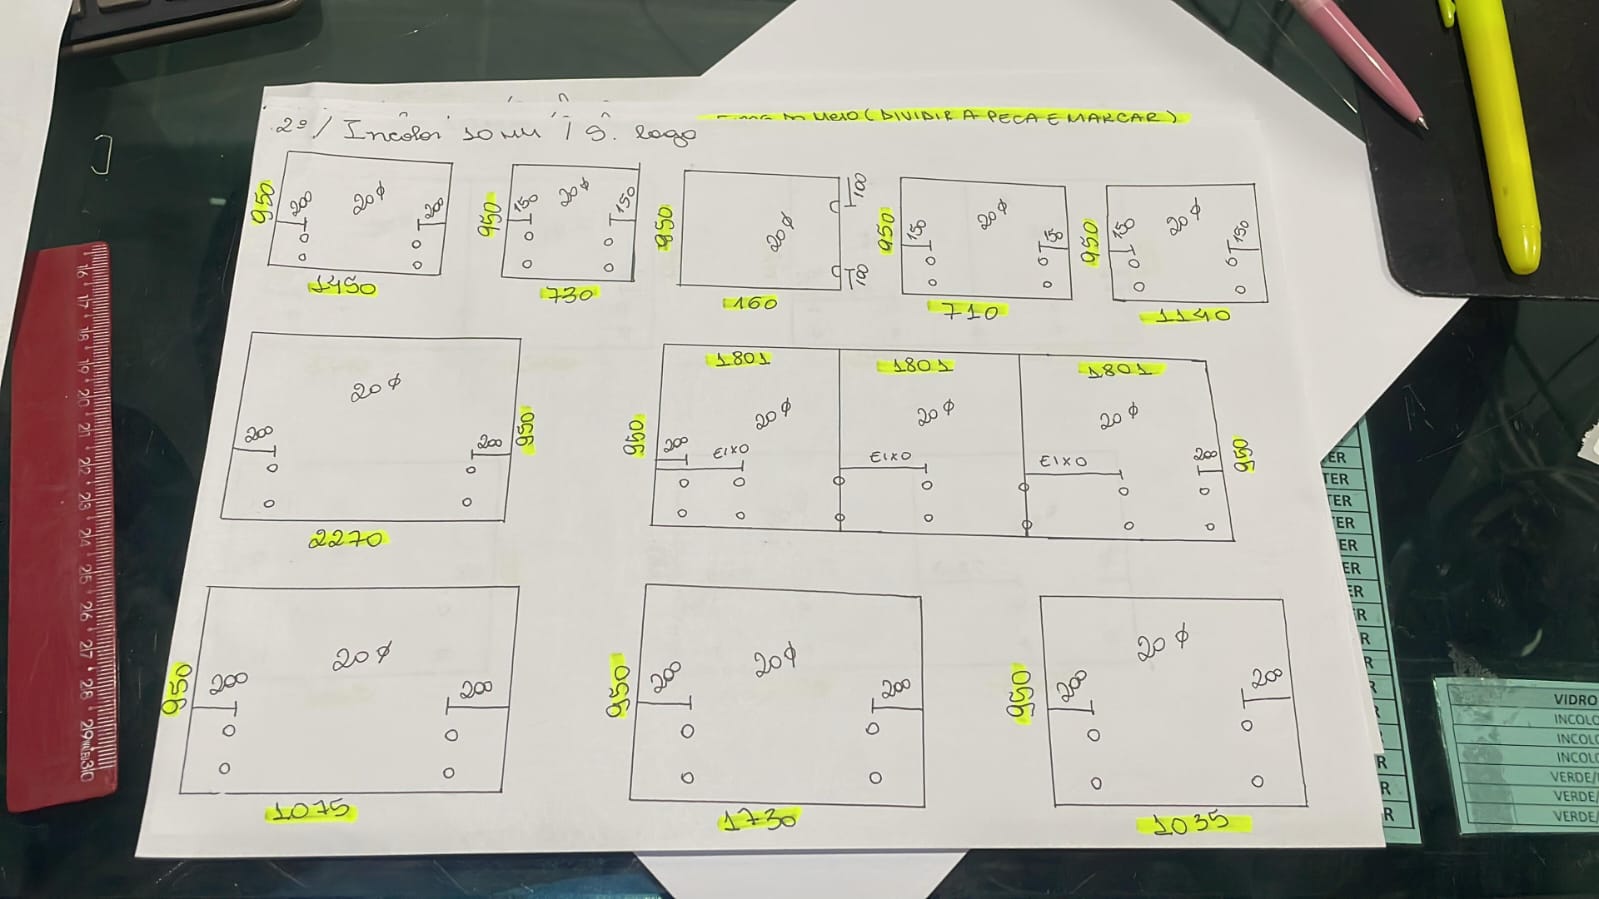 MEIO (DIVIDIR A PEÇA E MARCAR)
2º/ Incolor 10 mm / S. logo
950 200 20 φ 200
1450
950 150 20 φ 150
730
950 20 φ 100 100
160
950 150 20 φ 150
710
950 150 20 φ 150
1140
20 φ
200 200 950
2270
1801 1801 1801
950 20 φ 20 φ 20 φ 950
200 EIXO EIXO EIXO 200
950 200 20 φ 200
1075
950 200 20 φ 200
1730
950 200 20 φ 200
1035
16 17 18 19 20 21 22 23 24 25 26 27 28 29 30
ER
TER
TER
ER
ER
ER
ER
R
R
R
R
R
R
R
R
VIDRO
INCOLO
INCOLO
INCOLO
VERDE/
VERDE/
VERDE/